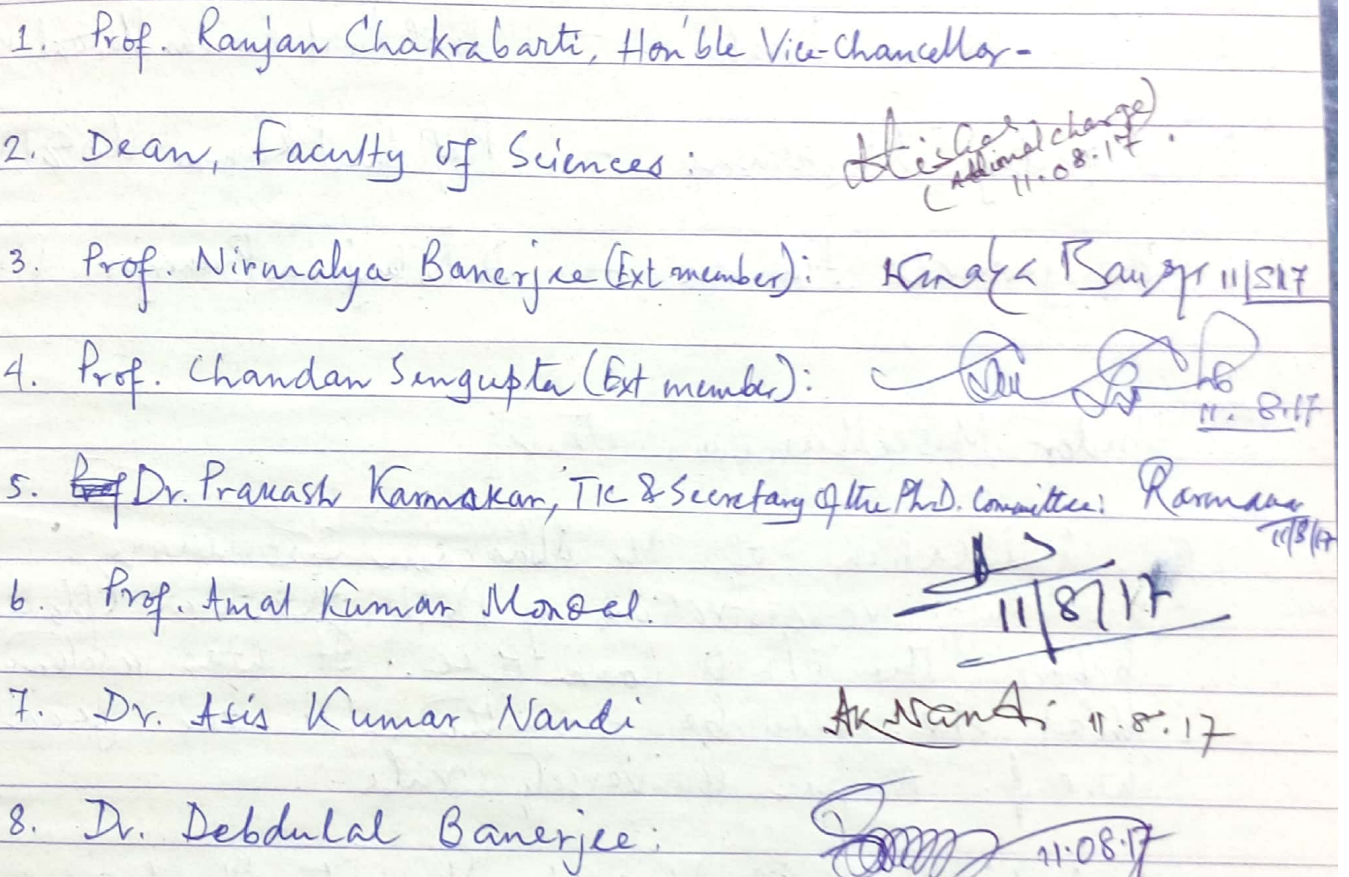 1. Prof. Ranjan Chakrabarti, Hon'ble Vice-Chancellor -
2. Dean, Faculty of Sciences :
(Additional charge)
11.08.17
3. Prof. Nirmalya Banerjee (Ext member): 11/8/17
4. Prof. Chandan Sengupta (Ext member):
11.8.17
5. Dr. Prakash Karmakar, TIC & Secretary of the Ph.D. Committee: Karmakar
11/8/17
6. Prof. Amal Kumar Mondal.
11/8/17
7. Dr. Asis Kumar Nandi AK Nandi 11.8.17
8. Dr. Debdulal Banerjee: 11.08.17